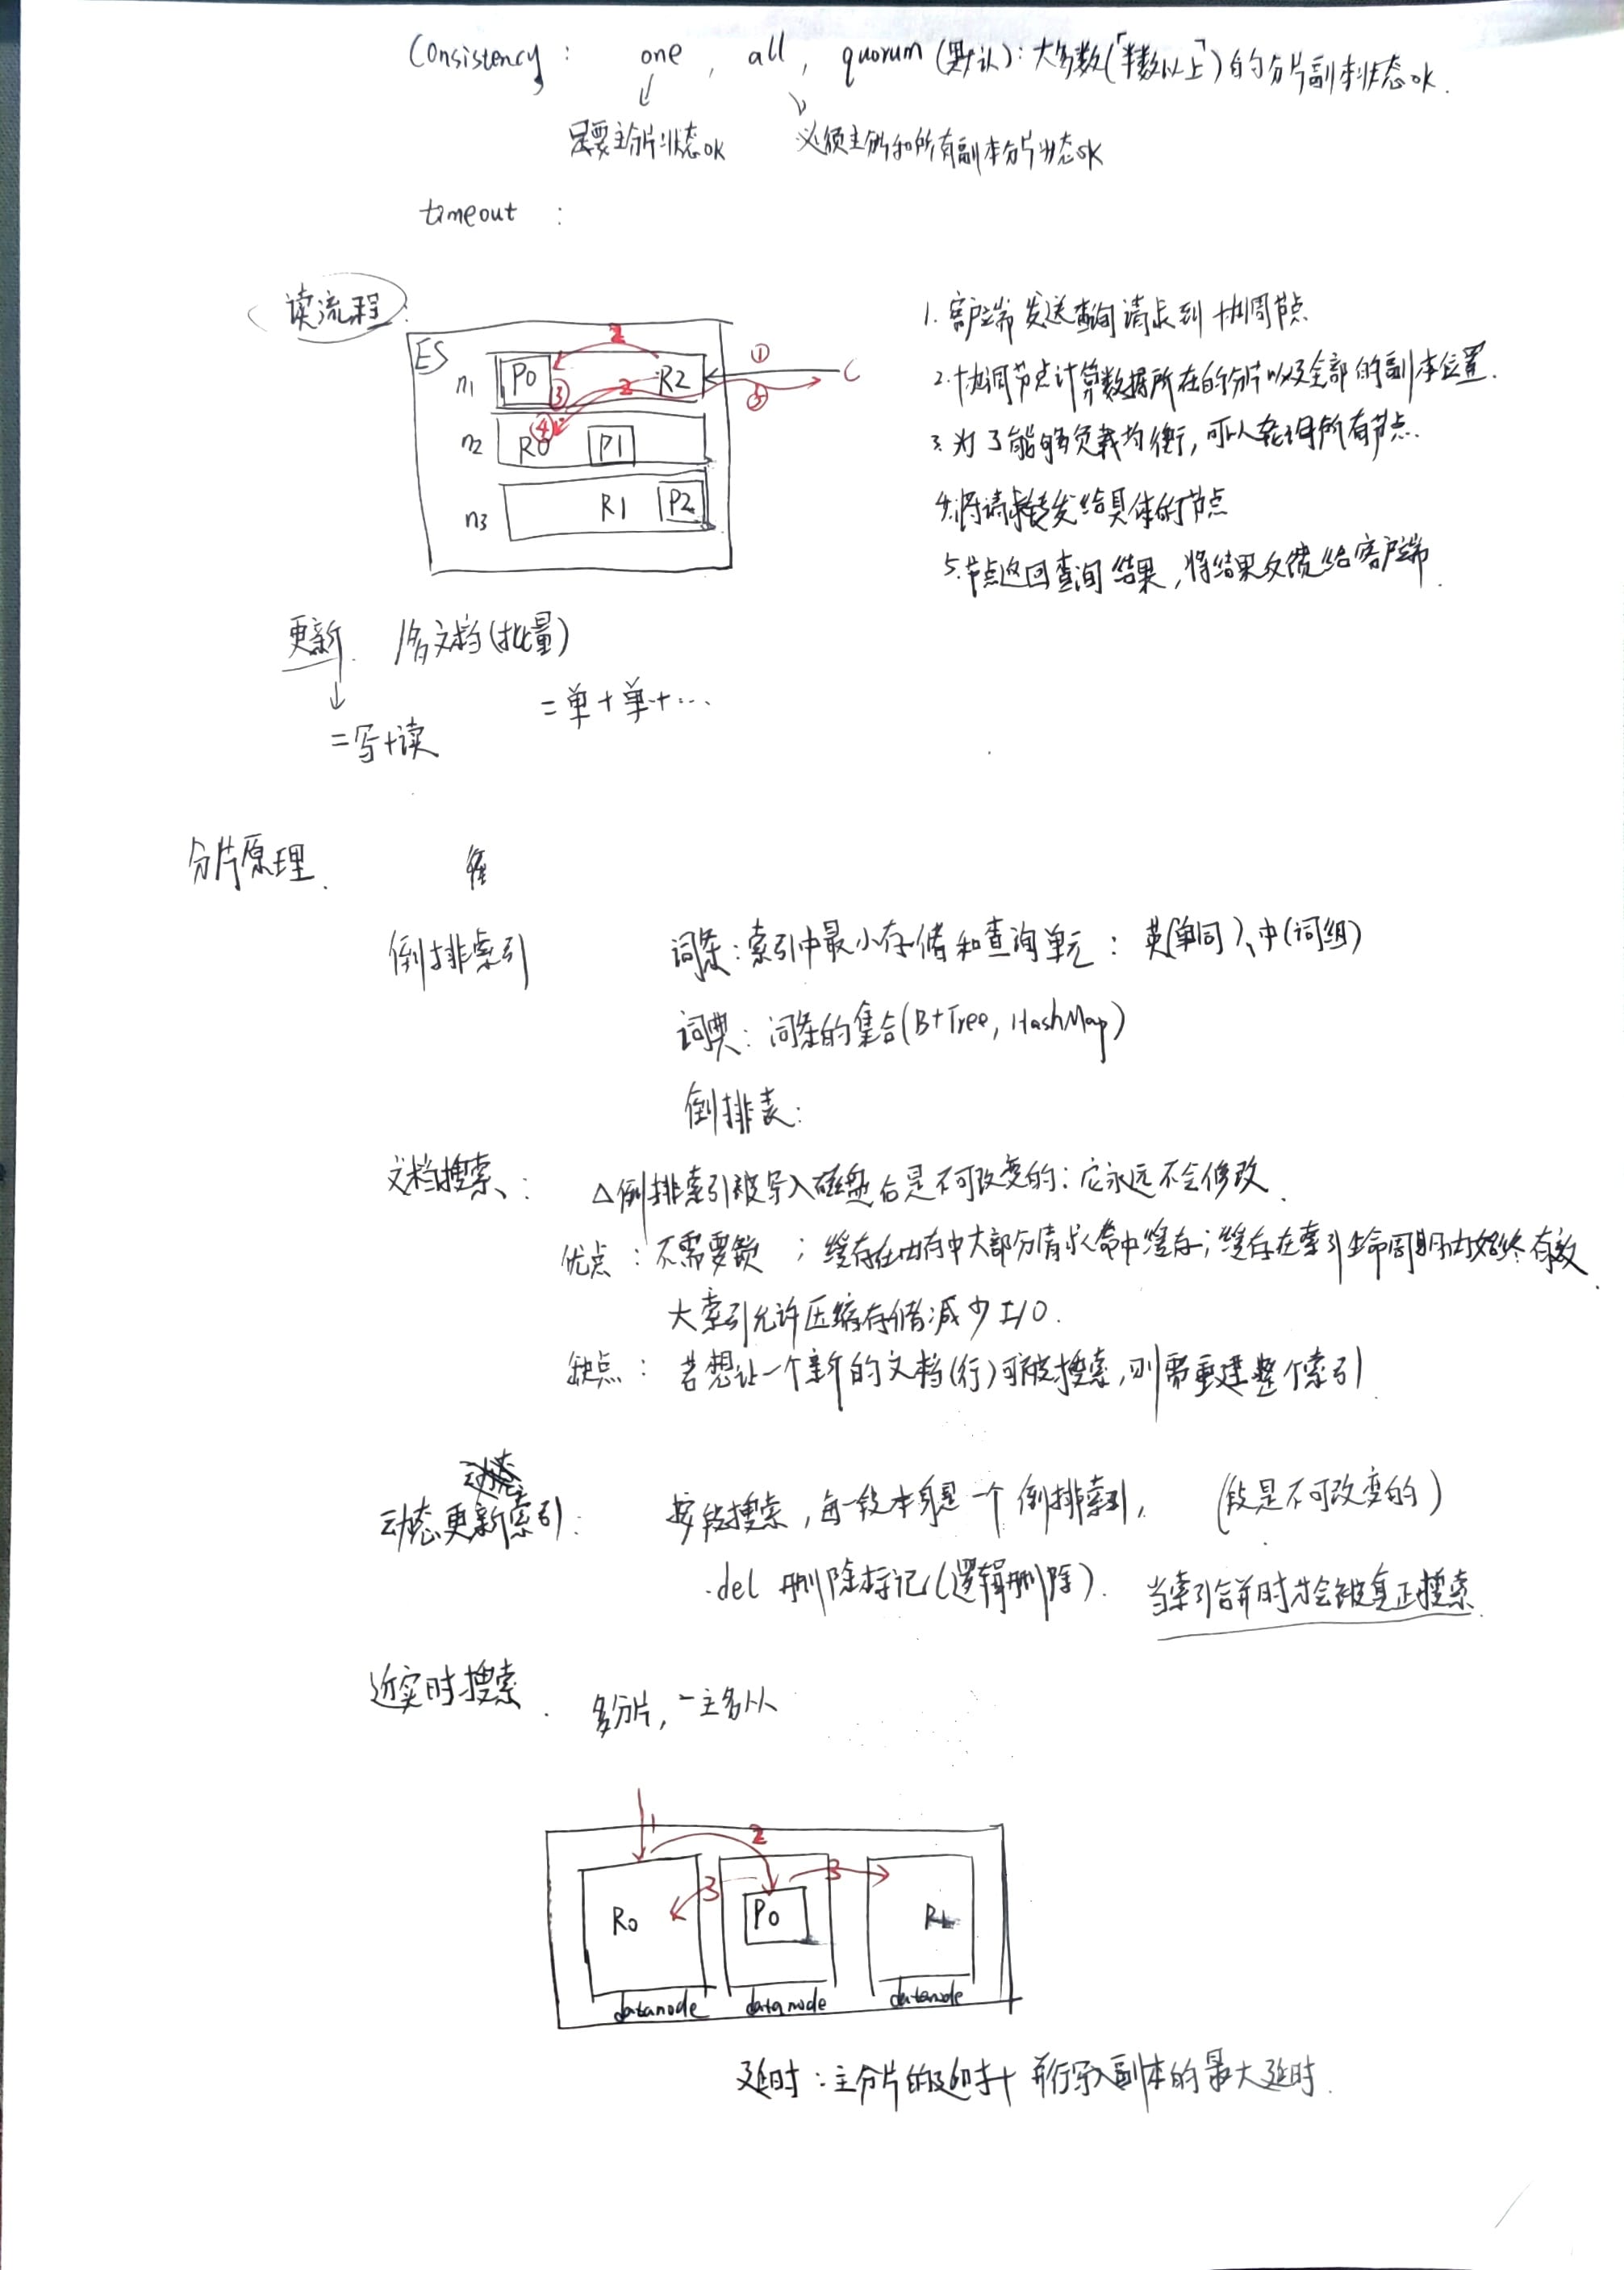 Consistency: one, all, quorum(默认):大多数(「半数以上」)的分片副本状态ok.
只要主分片状态ok 必须主分片和所有副本分片状态ok
timeout :
读流程:
ES
n1 P0 R2
n2 R0 P1
n3 R1 P2
2
2
①
③
④
⑤
C
1.客户端发送查询请求到协调节点
2.协调节点计算数据所在的分片以及全部的副本位置.
3.为了能够负载均衡,可以轮询所有节点.
4.将请求转发给具体的节点
5.节点返回查询结果,将结果反馈给客户端.
更新. /多文档(批量)
=单+单+...
=写+读
分片原理.
倒排索引 词条:索引中最小存储和查询单元: 英(单词)、中(词组)
词典:词条的集合(B+Tree, HashMap)
倒排表:
文档搜索: △倒排索引被写入磁盘后是不可改变的:它永远不会修改.
优点:不需要锁 ;缓存在内存中大部分请求命中缓存;缓存在索引生命周期内始终有效.
大索引允许压缩存储减少I/O.
缺点: 若想让一个新的文档(行)可被搜索,则需重建整个索引
动态更新索引: 按段搜索,每一段本身是一个倒排索引, (段是不可改变的)
.del 删除标记(逻辑删除). 当索引合并时才会被真正搜索.
近实时搜索. 多分片,一主多从
1 2
3 3
R0 P0
datanode datanode datanode
延时:主分片的延时+ 并行写入副本的最大延时.